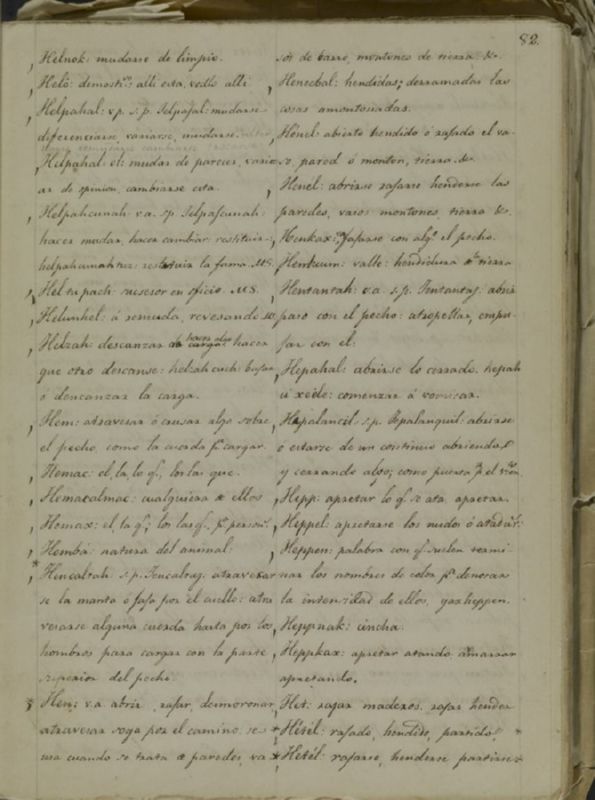 82.
Helnok: mudarse de limpio.
Helo: demost.: alli esta, vedlo alli
Helpahal: v.p. s.p. Jelpajal: mudarse
diferenciarse, variarse, mudarse
Helpahal ol: mudar de parecer, variar
de opinion, cambiarse esta.
Helpahcunah: v.a. sp Jelpajcunah:
hacer mudar, hacer cambiar restituir,
helpahcunahtuz: restituir la fama. MS.
Hel tu pach: sucesor en oficio. MS.
Helunhel: á remuda, revesandose
Helzah: descanzar la carga, hacer
que otro descanse: helzah cuch: bajar
ó descanzar la carga.
Hem: atravesar ó crusar algo sobre
el pecho, como la cuerda pª cargar.
Hemac: el, la, lo q., los las que.
Hemacalmac: cualquiera de ellos
Hemax: el, la q.; los las q. pª person.
Hembá: natura del animal.
Hencaltah s.p. Jencaltaj. atravesar
se la manta ó faja por el cuello: atra
vesarse alguna cuerda hasta por los
hombros para cargar con la parte
superior del pecho.
Hen: v.a. abrir, rajar, desmoronar
atravesar soga por el camino, se s
usa cuando se trata de paredes, va
sos de barro, montones de tierra &.
Henecbal: hendidas; derramadas las
cosas amontonadas.
Hénel: abierto hendido ó rajado el va
so, pared ó monton, tierra &
Henél: abrirse rajarse henderse las
paredes, vasos montones, tierra &.
Henkax: jasarse con alg. el pecho.
Henluum: valle: hendidura de tierra
Hentantah: v.a. s.p. Jentantaj: abrir
paso con el pecho: atropellar, empu
jar con el:
Hepahal: abrirse lo cerrado. hepah
u xéde: comenzar á vomitar.
Hepalancil: s.p. Jepalanquil: abrirse
ó estarse de un continuo abriendo
y cerrando algo; como puerta p. el vien.
Hepp: apretar lo q. se ata, apretar.
Heppel: apretarse los nudos ó atadur.
Heppen: palabra con q. suelen termi
nar los nombres de color pª denotar
la intensidad de ellos, yaxheppen.
Heppnak: cincha.
Heppkax: apretar atando amarrar
apretando.
Het: rajar maderos, rajar hender
Hétél: rajado, hendido, partido,
Hetél: rajarse, henderse partirse